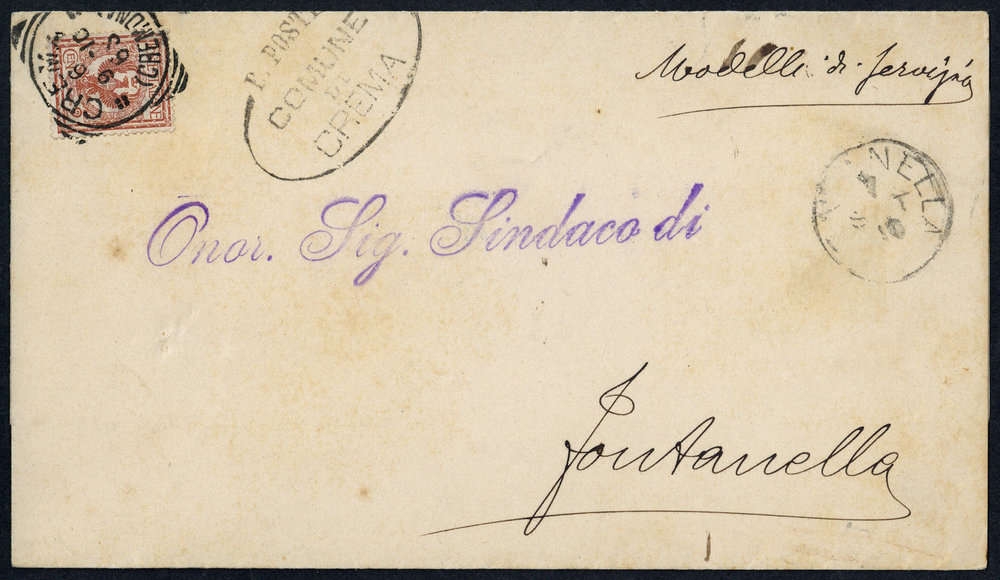 CREMA
(CREMONA)
R. POSTE
COMUNE
DI
CREMA
Modelli di
NELLA
Onor. Sig. Sindaco di
Fontanella